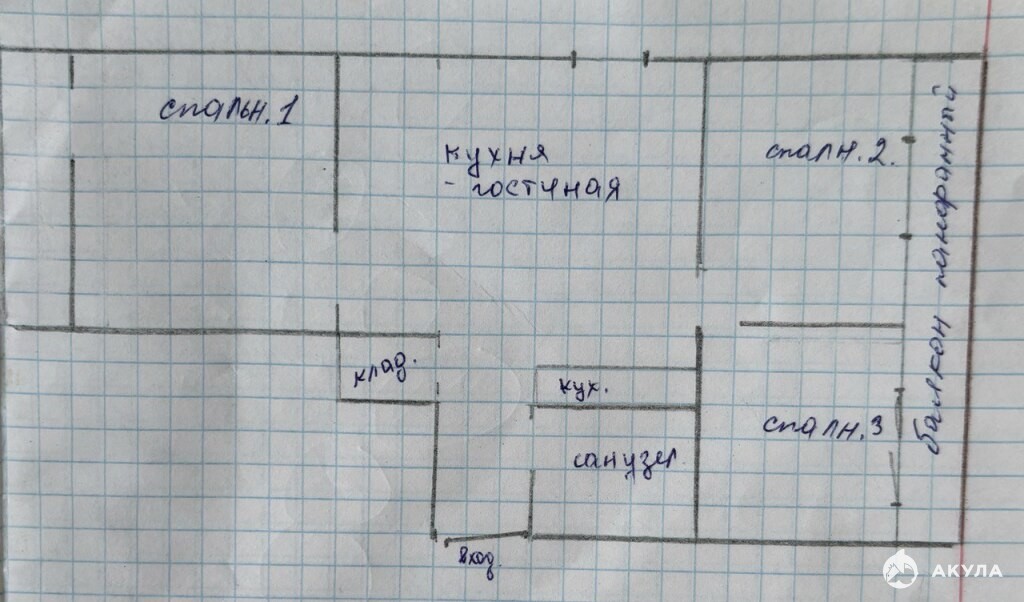 спальн.1
кухня
- гостиная
спалн.2.
балкон панорамный
клад.
кух.
спалн.3
санузел
вход
АКУЛА